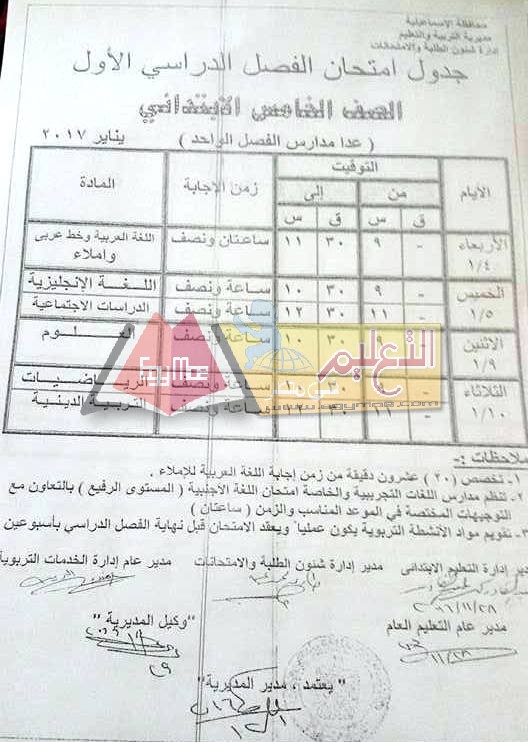 محافظة الإسماعيلية
مديرية التربية والتعليم
إدارة شئون الطلبة والامتحانات
جدول امتحان الفصل الدراسي الأول
الصف الخامس الابتدائي
( عدا مدارس الفصل الواحد ) يناير ٢٠١٧
الأيام التوقيت زمن الإجابة المادة
من إلى
ق س ق س
الأربعاء ١/٤ - ٩ ٣٠ ١١ ساعتان ونصف اللغة العربية وخط عربى وإملاء
الخميس ١/٥ - ٩ ٣٠ ١٠ ساعة ونصف اللغة الإنجليزية
- ١١ ٣٠ ١٢ ساعة ونصف الدراسات الاجتماعية
الاثنين ١/٩ - ٩ ٣٠ ١٠ ساعة ونصف العلوم
الثلاثاء ١/١٠ - ٩ ٣٠ ١٠ ساعة ونصف الرياضيات
- ١١ ٣٠ ١٢ ساعة ونصف التربية الدينية
التعليم
ملاحظات :-
١- تخصص (٢٠) عشرون دقيقة من زمن إجابة اللغة العربية للإملاء .
٢- تنظم مدارس اللغات التجريبية والخاصة امتحان اللغة الأجنبية ( المستوى الرفيع ) بالتعاون مع
التوجيهات المختصة في الموعد المناسب والزمن ( ساعتان )
٣- تقويم مواد الأنشطة التربوية يكون عمليا ويعقد الامتحان قبل نهاية الفصل الدراسي بأسبوعين
مدير إدارة التعليم الابتدائى مدير إدارة شئون الطلبة والامتحانات مدير عام إدارة الخدمات التربوية
مدير عام التعليم العام "وكيل المديرية"
" يعتمد ، مدير المديرية "